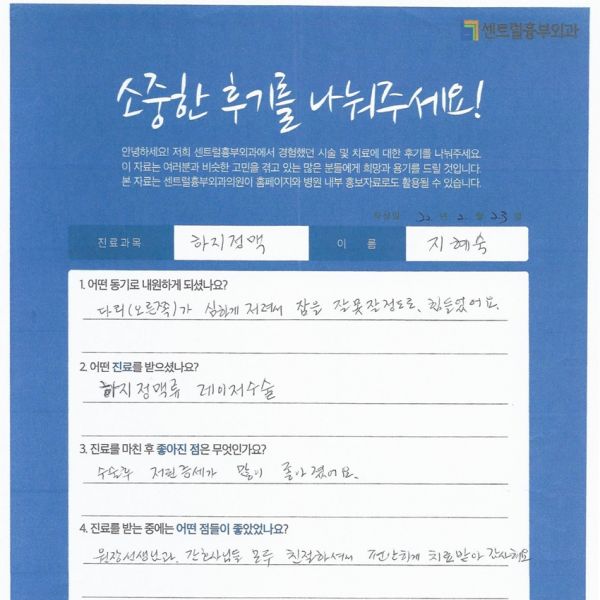 센트럴흉부외과
소중한 후기를 나눠주세요!
안녕하세요! 저희 센트럴흉부외과에서 경험했던 시술 및 치료에 대한 후기를 나눠주세요.
이 자료는 여러분과 비슷한 고민을 겪고 있는 많은 분들에게 희망과 용기를 드릴 것입니다.
본 자료는 센트럴흉부외과의원이 홈페이지와 병원 내부 홍보자료로도 활용될 수 있습니다.
작성일 22 년 2. 월 23 일
진료과목 하지정맥 이 름 지혜숙
1. 어떤 동기로 내원하게 되셨나요?
다리(오른쪽)가 심하게 저려서 잠을 잘못잘정도로, 힘들었어요.
2. 어떤 진료를 받으셨나요?
하지정맥류 레이저수술
3. 진료를 마친 후 좋아진 점은 무엇인가요?
수술후 저린증세가 많이 좋아졌어요.
4. 진료를 받는 중에는 어떤 점들이 좋았었나요?
원장선생님과, 간호사님들 모두 친절하셔서 편안하게 치료받아 감사해요